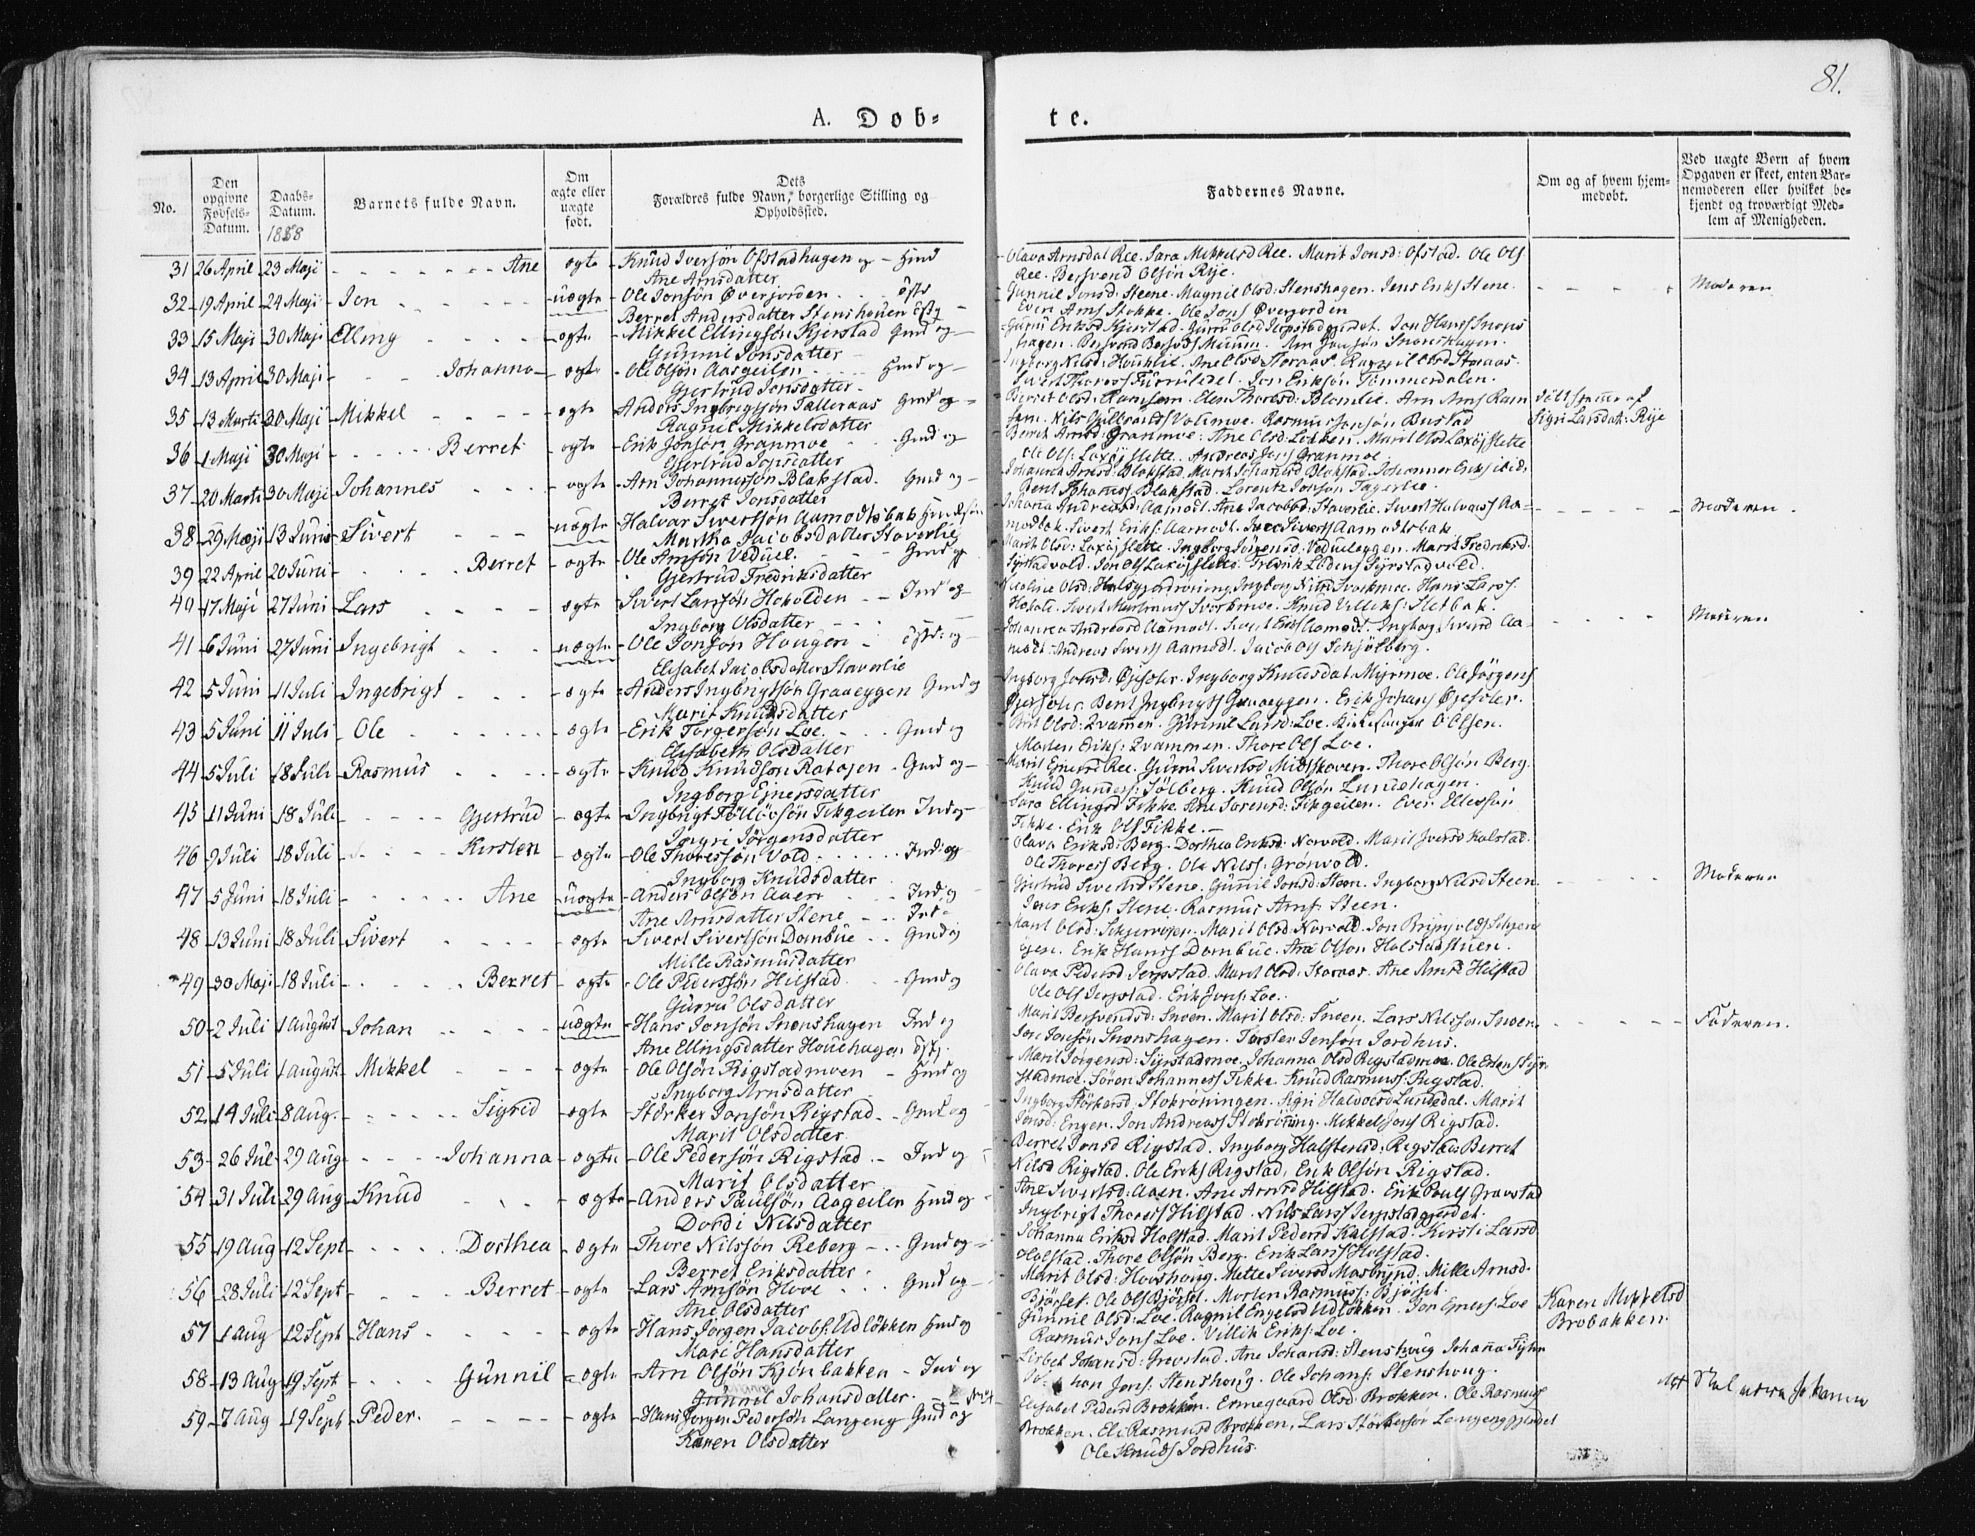 81.
A. Døb-
te.
No.
Den opgivne Fødsels-Datum.
Daabs-Datum.
1828
Barnets fulde Navn.
Om ægte eller uægte født.
Dets Forældres fulde Navn, borgerlige Stilling og Opholdssted.
Faddernes Navne.
Om og af hvem hjem-medøbt.
Ved uægte Børn af hvem Opgaven er skeet, enten Bar-nemoderen eller hvilket be-kjendt og troværdigt Med-lem af Menigheden.
31 26 April 23 Maji Ane ægte Knud Iversøn Ofstadhagen og Hmd
Ane Arnsdatter
Olava Arnsdal Ree. Sara Mikkelsd Ree. Marit Jonsd: Ofstad. Ole Ols
Ree. Bersvend Olsøn Rije.
32 19 April 24 Maji Jon uægte Ole Jonsøn Øverjorden
Berret Andersdatter Stenshouen
Gunnil Jonsd: Steene. Magnil Olsd: Stenshagen. Jens Eriks Stene.
Even Arns Stokke. Ole Jons Øverjorden
Moderen
33 15 Maji 30 Maji Elling ægte Mikkel Ellingsøn Kjerstad Gmd og
Gunnil Jonsdatter
34 13 April 30 Maji Johanna ægte Ole Olsøn Aasgeilen Hmd og
Gjertrud Jonsdatter
Sivert Thoress Furruledet. Jon Eriksøn Tømmerdalen.
35 13 Marti 30 Maji Mikkel ægte Anders Ingbrigtsøn Talleraas Gmd og
Ragnil Mikkelsdatter
Berret Olsd: Ramsem. Elen Thoresd: Blomlie. Arn Arns Ram
sem. Nils Gulbrands Volimoe. Rasmus Jonsøn Bustad
Sigri Larsdat: Rije
36 1 Maji 30 Maji Berret ægte Erik Jonsøn Granmoe Gmd og
Gjertrud Jonsdatter
Berret Arnsd: Granmoe. Ane Olsd: Løkken. Marit Olsd Laxøjslette
Ole Ols: Laxøjslette. Andreas Jons Granmoe.
37 20 Marti 30 Maji Johannes ægte Arn Johannessøn Blakstad. Gmd og
Berret Jonsdatter
Johanna Arnsd: Blakstad. Marit Johansd Blakstad. Johannes Eriks ibid:
Bent Johans Blakstad. Lorentz Jonsøn Fagerlie.
38 29 Maji 13 Juni Sivert uægte Halvar Sivertsøn Aamodtsbak
Martha Jacobsdatter Staverlie
Johanna Andreasd Aamodt. Ane Jacobsd: Staverlie. Sivert Halvorss Aa-
modtbak. Sivert Eriks: Aamodt. Iver Siverts Aamodtsbak
Moderen.
39 22 April 20 Juni Berret ægte Ole Arnsøn Veduel. Gmd og
Gjertrud Fredriksdatter
Marit Olsd: Laxøjslette. Ingborg Jørgensd: Veduleggen. Marit Fredriksd.
Syrstadvold. Jon Ols Laxøjslette. Fredrik Edens Syrstadvold.
40 17 Maji 27 Juni Lars ægte Sivert Larsøn Hoholden Ind og
Ingborg Olsdatter
41 6 Juni 27 Juni Ingebrigt uægte Ole Jonsøn Hougen
Elisabet Jacobsdatter Staverlie
Johanna Andreasd Aamodt. Sivert Eriks Aamodt. Ingborg Siverd Aa-
modt. Andreas Siverts Aamodt. Jacob Ols Schjølberg.
Moderen
42 5 Juni 11 Juli Ingebrigt ægte Anders Ingbrigtsøn Graaeggen Gmd og
Marit Knudsdatter
Ingborg Jonsd: Øjesler. Ingborg Knudsdat Myrmoe. Ole Jørgens
Øjesler. Bent Ingbrigts Graaeggen. Erik Johans Øjesler.
43 5 Juni 11 Juli Ole ægte Erik Torgersøn Loe. Gmd og
Elisabeth Olsdatter
Marit Olsd: Qvammen. Gunnil Larsd: Loe. Kirkesanger O Olsen.
Morten Eriks: Qvammen. Thore Ols Loe.
44 5 Juli 18 Juli Rasmus ægte Knud Knudsøn Ratajen. Gmd og
Ingborg Einersdatter
Marit Einersd Ree. Gurru Sivertsd Midtskoven. Thore Olsøn Berg.
Knud Gunders: Sølberg. Knud Olsøn Lundshagen.
45 11 Juni 18 Juli Gjertrud ægte Ingbrigt Tølløvsøn Fikgeilen Ind og
Ingri Jørgensdatter
Sara Ellingsd Fikke. Ane Sørensd: Fikgeilen. Even Ellessøn
Fikke. Erik Ols Fikke.
46 9 Juli 18 Juli Kirsten ægte Ole Thoressøn Vold. Ind og
Ingborg Knudsdatter
Olava Eriksd: Berg. Dorthea Eriksd: Norvold. Marit Iversd Kalstad.
Ole Thoress Berg. Ole Nilss: Grønvold.
47 5 Juni 18 Juli Ane uægte Anders Olsøn Aaen Ind og
Ane Arnsdatter Stene Ind.
Gjertrud Sivertsd Stene. Gunnil Jonsd: Steen. Ingborg Nilsd Steen.
Jens Eriks: Stene. Rasmus Arns: Steen.
Moderen
48 13 Juni 18 Juli Sivert ægte Sivert Sivertsøn Dombue Gmd og
Mille Rasmusdatter
Erik Hanss Dombue. Arn Olson Halstadstuen.
49 30 Maji 18 Juli Berret ægte Ole Pederssøn Hilstad Gmd og
Gurru Olsdatter
Olava Pedersd Jerpstad. Marit Olsd: Storaas. Ane Arnsd Hilstad
Ole Ols Jerpstad. Erik Jons: Loe.
50 2 Juli 1 August Johan uægte Hans Jonsøn Snoenshagen Ind og
Ane Ellingsdatter Houehagen
Marit Bersvendsd: Snoen. Marit Olsd: Snoen. Lars Nilsson Snoen.
Jon Jonsøn Snoenshagen. Torsten Jensøn Jordhus.
Faderen.
51 5 Juli 1 August Mikkel ægte Ole Olsøn Rigstadmoen Hmd og
Ingborg Arnsdatter
Marit Jørgensd: Syrstadmoe. Johanna Olsd Rigstadmoe. Ole Estens Syr-
stadmoe. Søren Johanness Fikke. Knud Rasmuss Rigstad.
52 14 Juli 8 Aug. Sigrid ægte Størker Jonsøn Rigstad Gmd og
Marit Olsdatter
Ingborg Størkersd: Stokrøningen. Sigri Halvorsd Lundedal. Marit
Jonsd: Engen. Jon Andreass Stokrøning. Mikkel Jons Rigstad.
53 26 Jul 29 Aug Johanna ægte Ole Pedersøn Rigstad. Ind og
Marit Olsdatter
Berret Jonsd Rigstad. Ingborg Halstensd: Rigstad. Berret
Nilsd Rigstad. Ole Eriks Rigstad. Erik Olsøn Rigstad.
54 31 Juli 29 Aug Knud ægte Anders Paulsøn Aageilen Hmd og
Dordi Nilsdatter
Ane Sivertsd: Aaen. Ane Arnsd Hilstad. Erik Pouls Gravstad
Ingbrigt Thoress Hilstad. Nils Larss Jerpstadgjerdet.
55 19 Aug 12 Sept Dorthea ægte Thore Nilssøn Reberg Gmd og
Berret Eriksdatter
Johanna Eriksd Halstad. Marit Pedersd Kalstad. Kirsti Larsd
Halstad. Thore Olsøn Berg. Erik Larss Halstad.
56 28 Juli 12 Sept Berret ægte Lars Arnsøn Hove Gmd og
Ane Olsdatter
Marit Olsd: Hovshoug. Mette Siversd Mosbrynd. Mille Arnsd.
Bjørset. Ole Ols Bjørset. Morten Rasmuss: Bjørset.
57 1 Aug 12 Sept Hans ægte Hans Jørgen Jacobs: Udløkken Hmd og
Mari Hansdatter
Gunnil Olsd: Loe. Ragnil Engelsd Udløkken. Jon Einers: Loe
Rasmus Jons Loe. Villik Eriks: Loe.
Karen Mikkelsd
Brobakken.
58 13 Aug 19 Sept Gunnil ægte Arn Olsøn Kjønbakken Ind og
Gunnil Johansdatter.
Lisbet Johansd: Grovstad. Ane Johansd: Stenshoug Johanna
Johan Jons: Stenshoug. Ole Johans: Stenshoug.
Skal være Johanna
59 7 Aug 19 Sept Peder. ægte Hans Jørgen Pedersøn Langeng Gmd og
Karen Olsdatter
Elisabet Pedersd Brokken. Ermegaard Olsd Brokken. Ole Rasmuss
Brokken. Eli Rasmusd Brokken. Lars Størkersøn Langenggjerdet
Ole Knuds Jordhus.